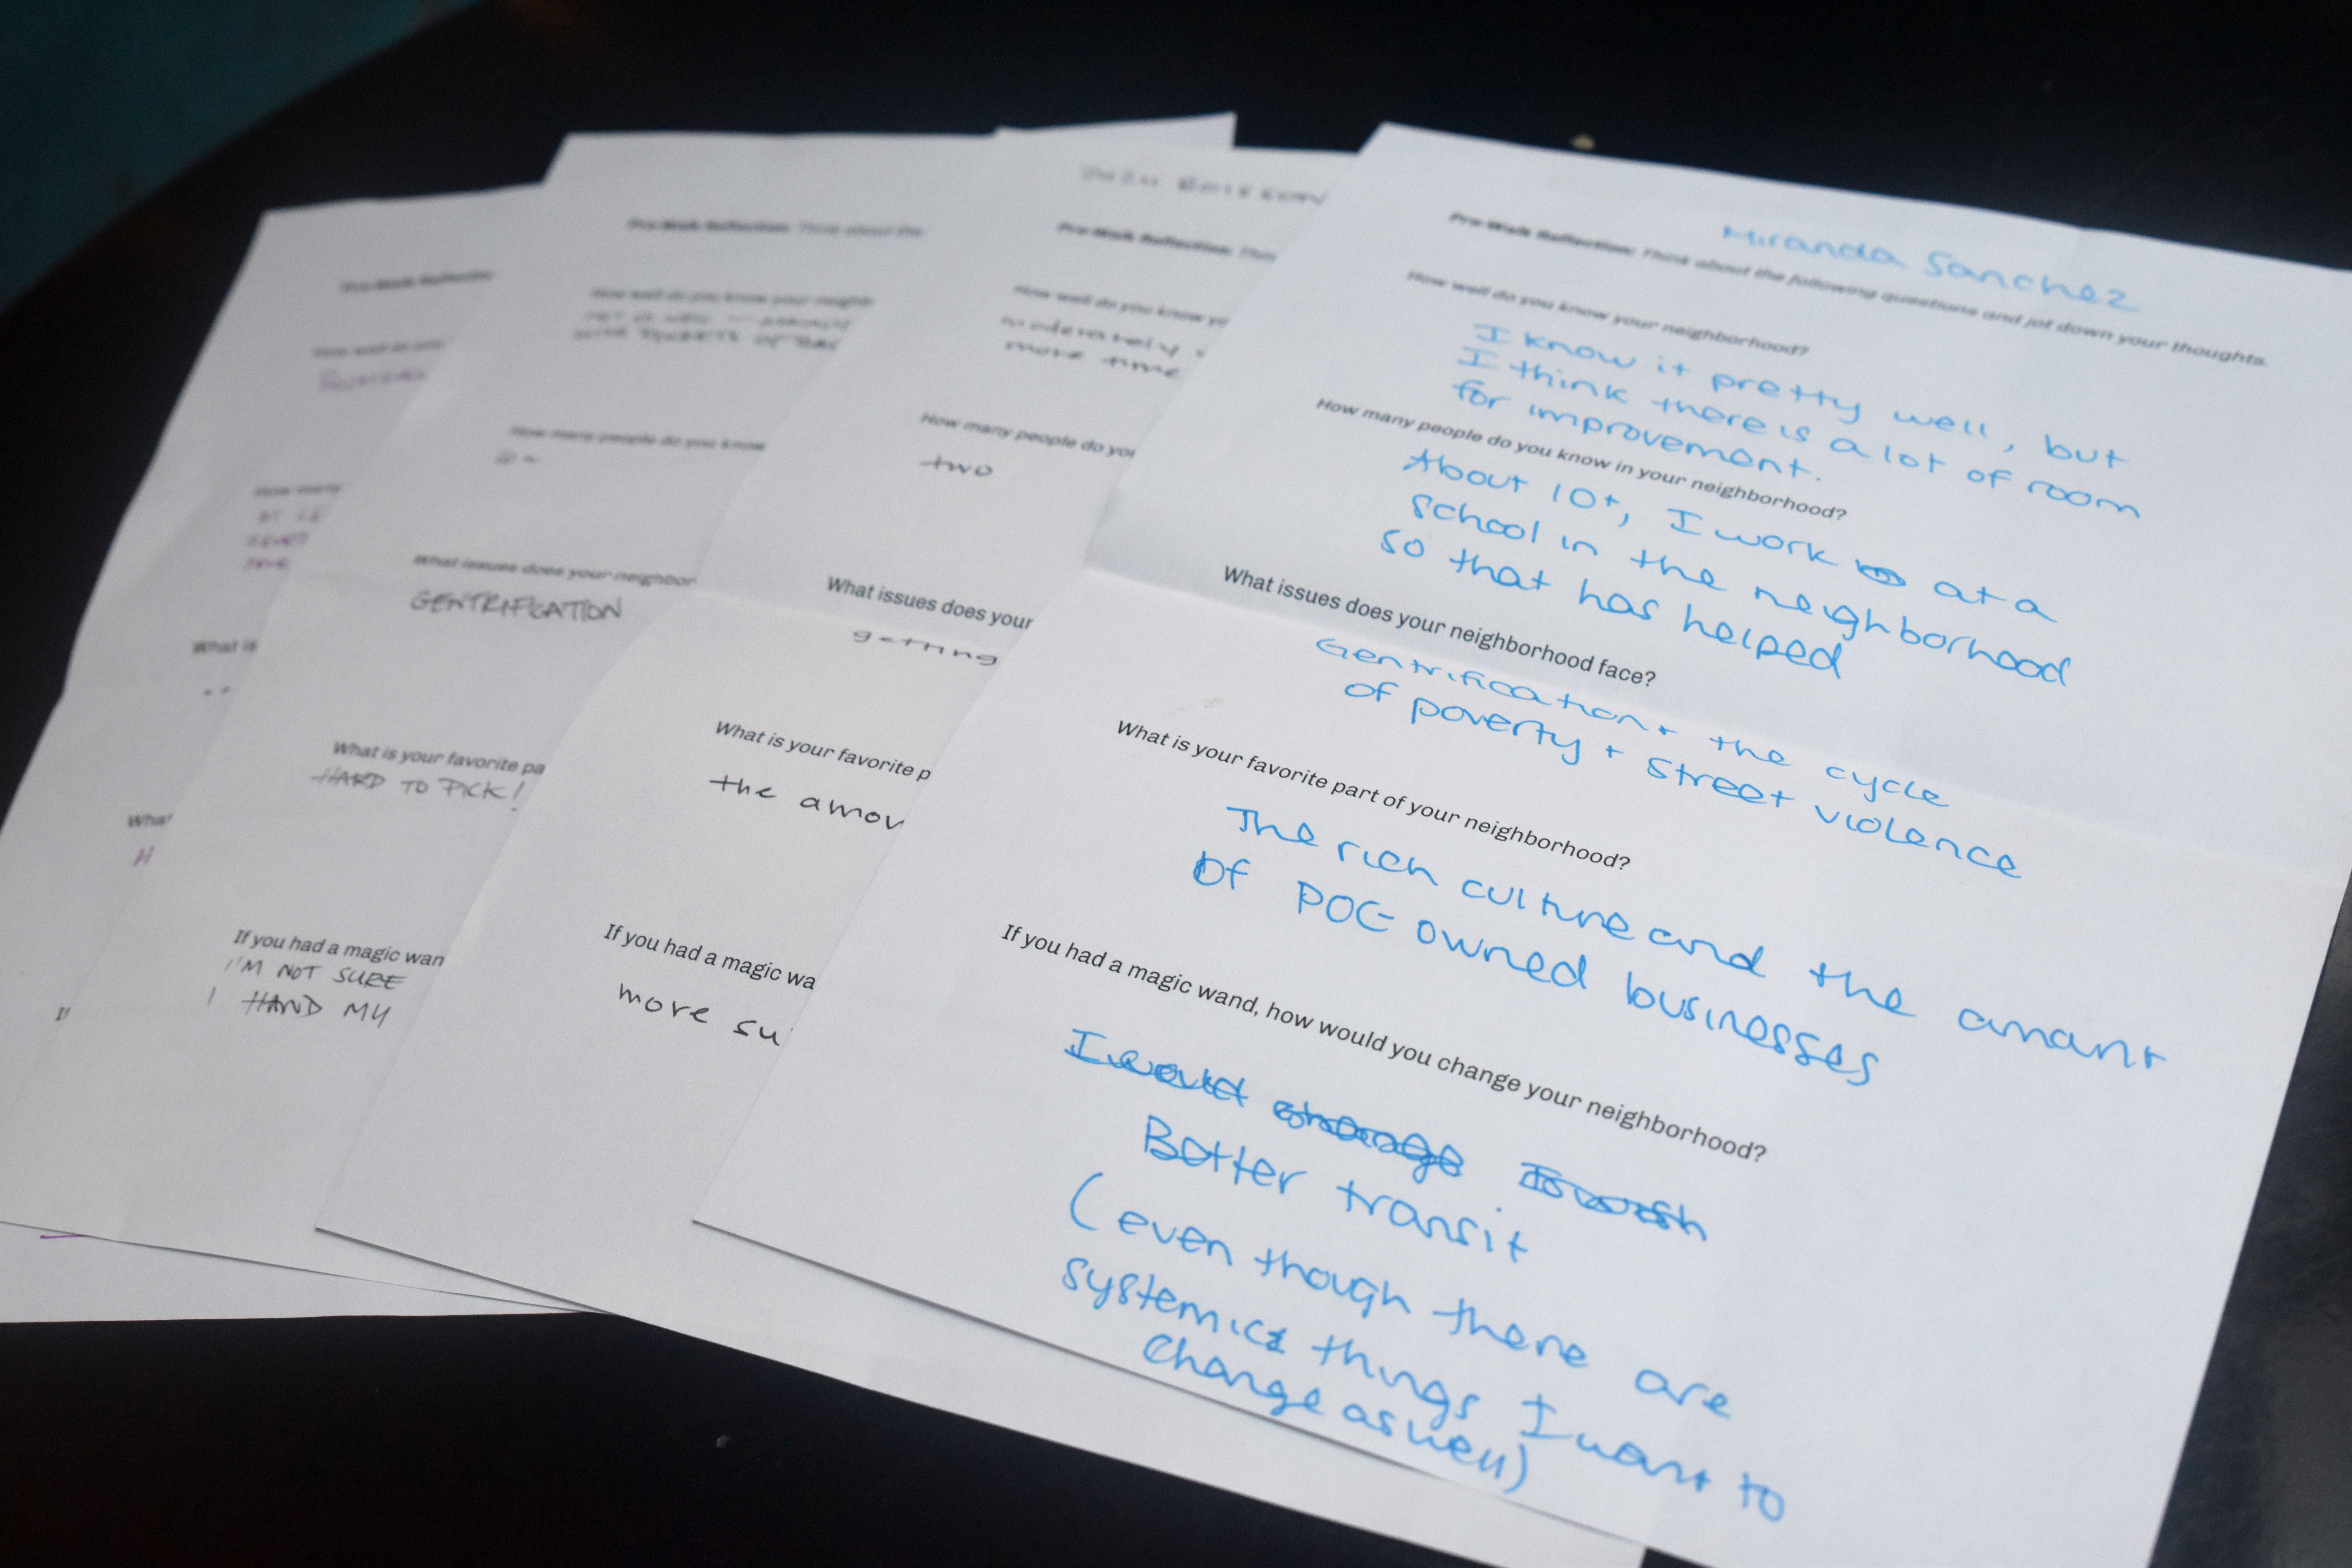 Miranda Sanchez
Pre-Walk Reflection: Think about the following questions and jot down your thoughts.
How well do you know your neighborhood?
I know it pretty well, but
I think there is a lot of room
for improvement.
How many people do you know in your neighborhood?
About 10+, I work at a
school in the neighborhood
so that has helped
What issues does your neighborhood face?
Gentrification + the cycle
of poverty + street violence
What is your favorite part of your neighborhood?
The rich culture and the amant
of POC owned businesses
If you had a magic wand, how would you change your neighborhood?
I would change
Better transit
(even though there are
systemic things I want to
change as well)
Pre-Walk Reflection: Thin
How well do you know yo
moderately
more time
How many people do you
two
What issues does your
getting
What is your favorite p
the amou
If you had a magic wa
more su
Pre-Walk Reflection: Think about the
How well do you know your neighb
How many people do you know
What issues does your neighbor
GENTRIFICATION
What is your favorite pa
HARD TO PICK!
If you had a magic wan
I'M NOT SURE
I HAND MY
Pre-Walk Reflection
How well do you
How many
What is
What
H
If